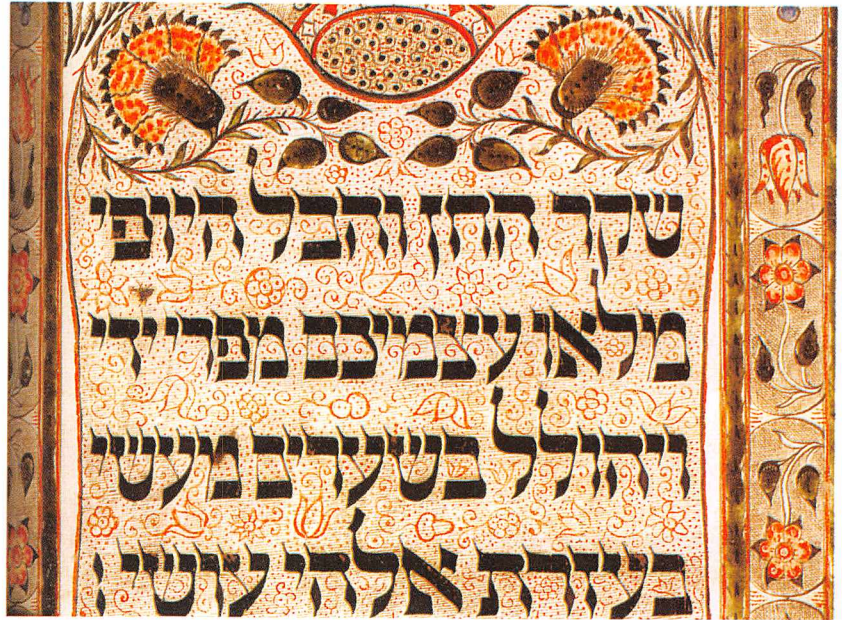 שקר החן והבל היופי
מלאו עצמיכם מפרי ידי
ויהולל בשערים מעשי
בעזרת אלהי עושי: